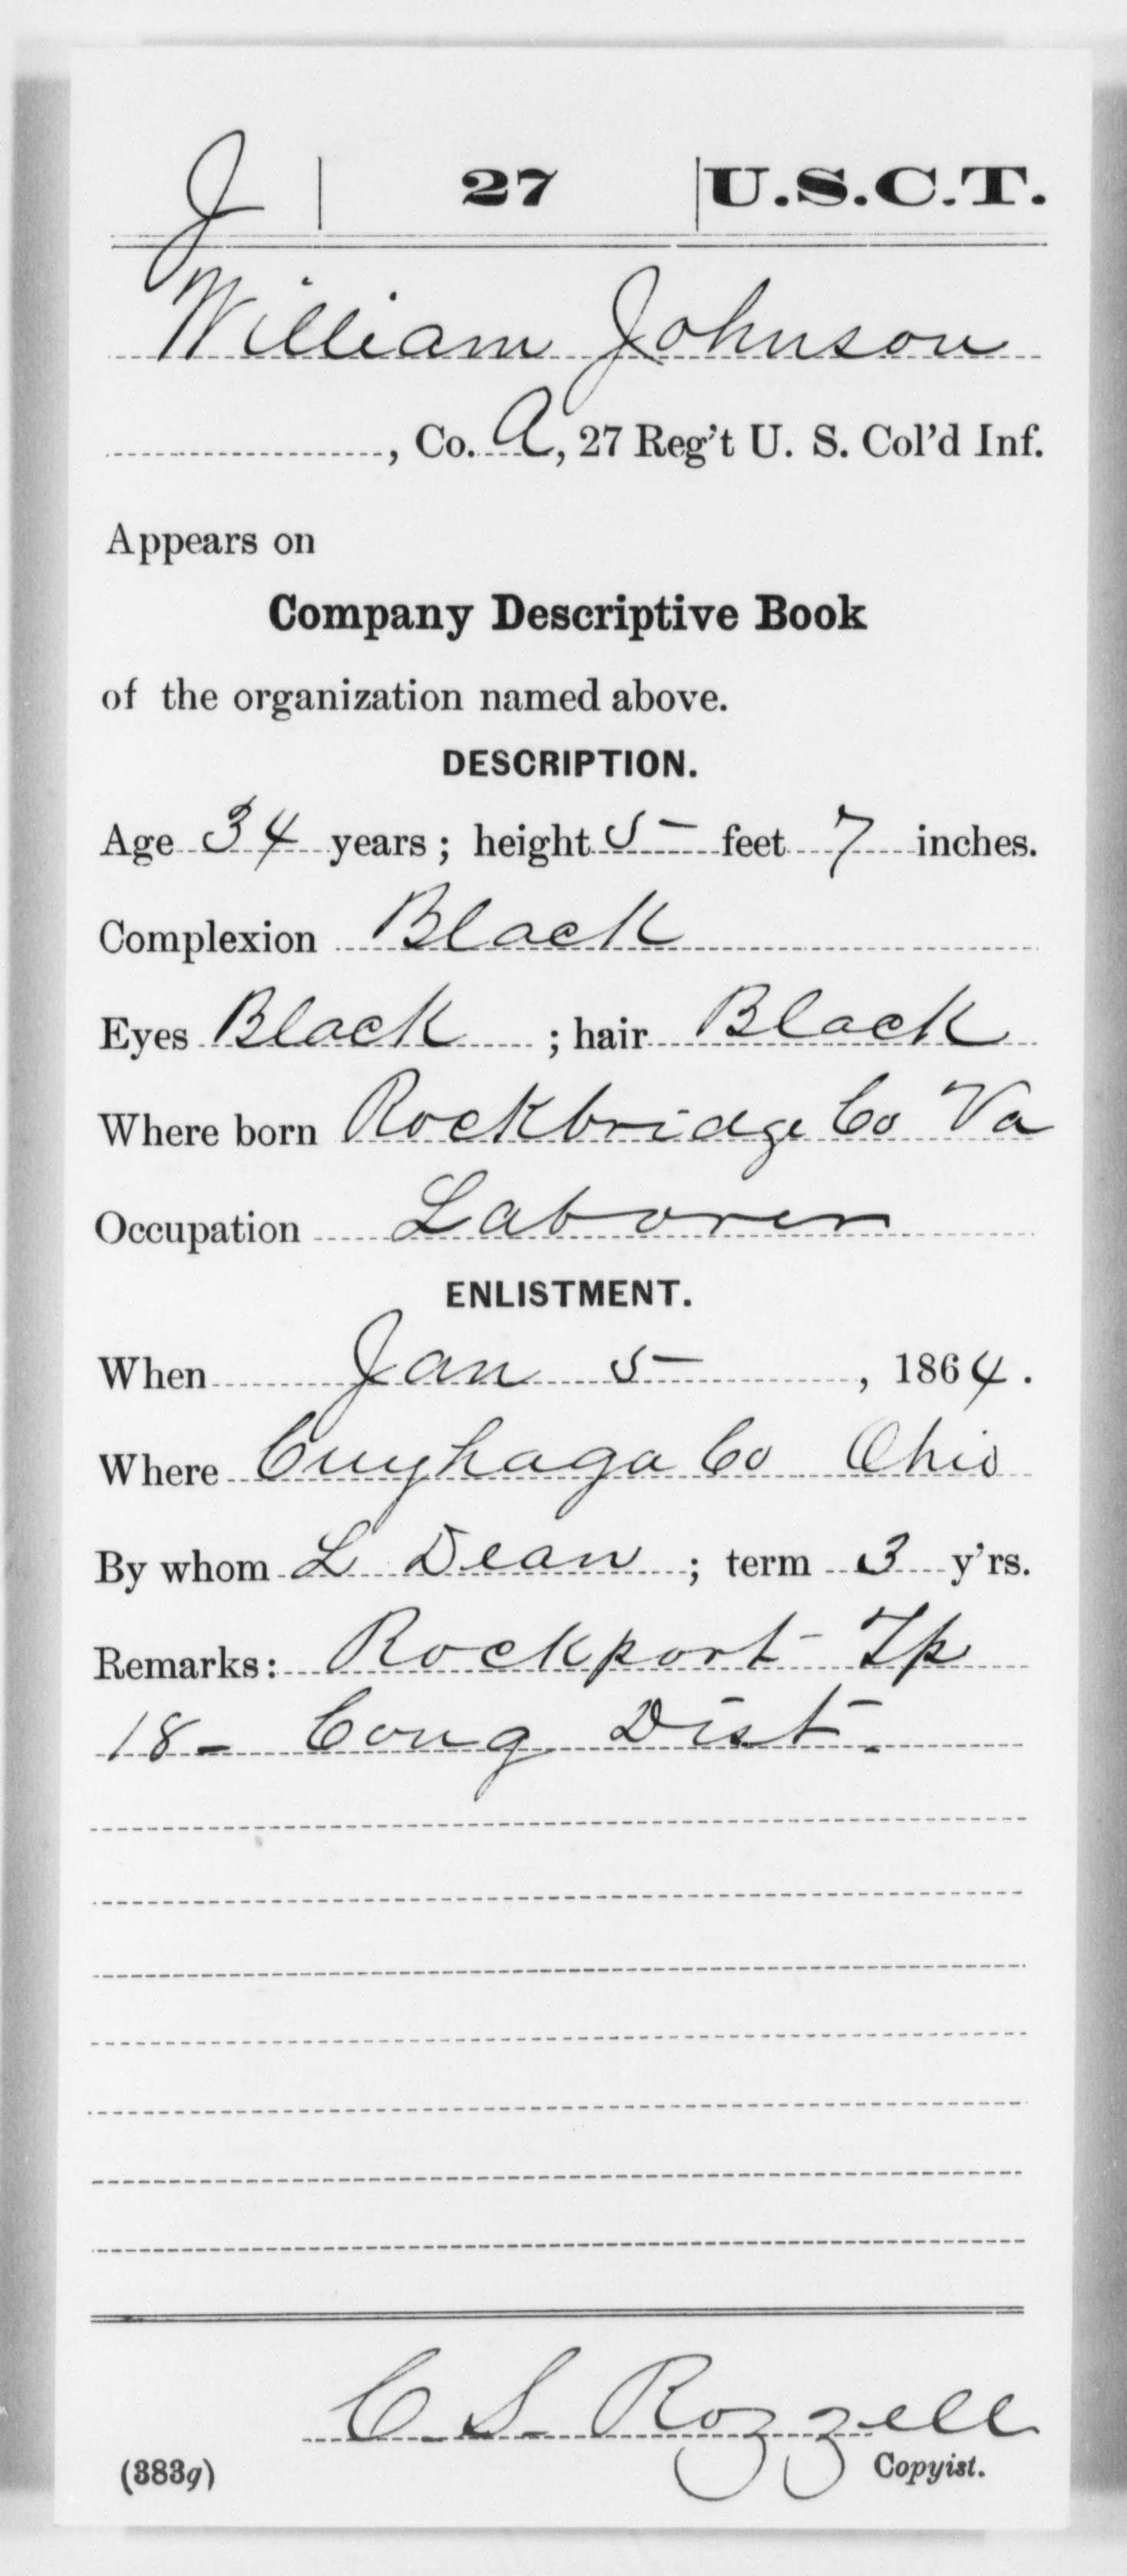 J | 27 | U.S.C.T.
William Johnson
, Co. A, 27 Reg't U. S. Col'd Inf.
Appears on
Company Descriptive Book
of the organization named above.
DESCRIPTION.
Age 34 years; height 5 feet 7 inches.
Complexion Black
Eyes Black ; hair Black
Where born Rockbridge Co Va
Occupation Laborer
ENLISTMENT.
When Jan 5 , 1864.
Where Cuyhaga Co Ohio
By whom L Dean ; term 3 y'rs.
Remarks: Rockport Tp
18- Cong Dist.
C. S. Rozzell
(383g) Copyist.